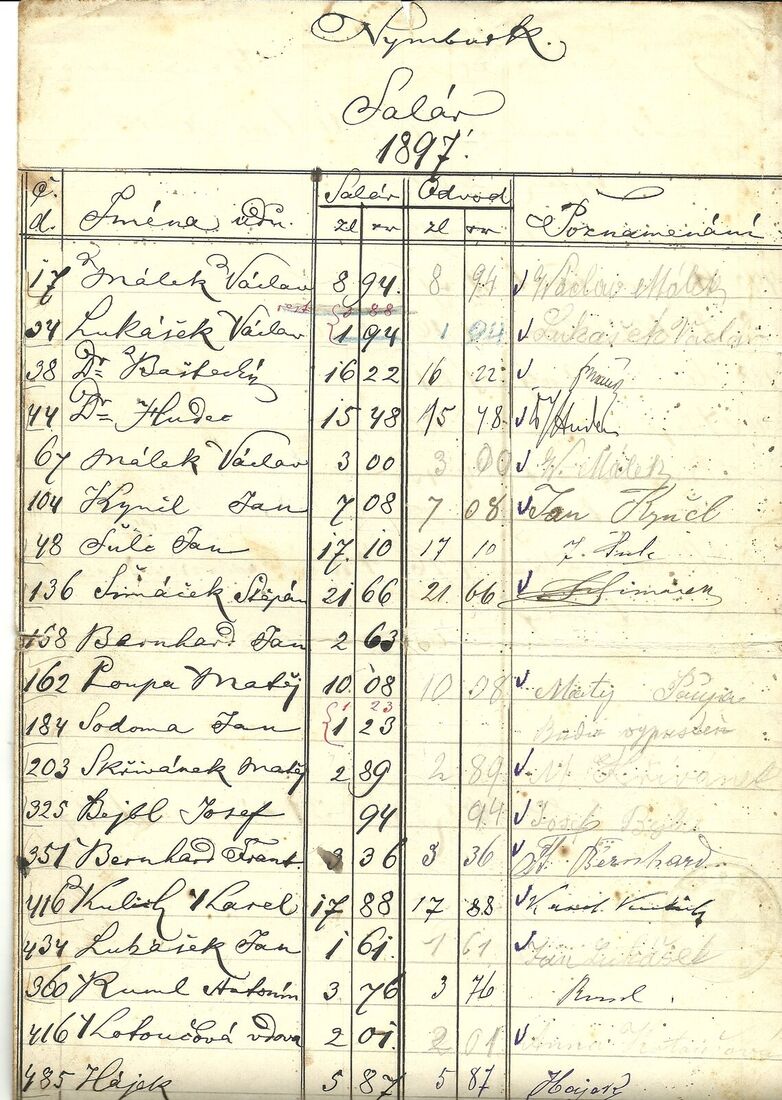 Nymburk.
Salár
1897.
Č. d. Jména údů. Salár Odvod Poznamenání
zl kr zl kr
17 Málek Václav 8 94. 8 94 Václav Málek
rest 88
34 Lukášek Václav 1 94 1 94 Lukášek Václav
38 Dr Baštecký 16 22 16 22
44 Dr Hudec 15 48 15 48. Hudec
67 Málek Václav 3 00 3 00 V. Málek
104 Kynčl Jan 7 08 7 08 Jan Kynčl
48 Šulc Jan 17. 10 17 10 J. Šulc
136 Šimáček Štěpán 21 66 21. 66 Šimáček
158 Barnhard Jan 2 63
162 Poupa Matěj 10. 08 10 08 Matěj Poupa
1 23
184 Sodoma Jan 1 23
203 Skřivánek Matěj 2 89 2 89 M. Skřivánek
325 Bejbl Josef 94 94 Josef Bejbl
351 Bernhard Frant. 3 36 3 36 Fr. Bernhard
416 Kulich Karel 17 88 17 88 Karel Kulich
434 Lukášek Jan 1 61. 1 61 Jan Lukášek
360 Ruml Antonín 3 76 3 76 Ruml.
416 Kotoučová vdova 2 01. 2 01 Anna Kotoučová
485 Hájek 5 87 5 87 Hájek